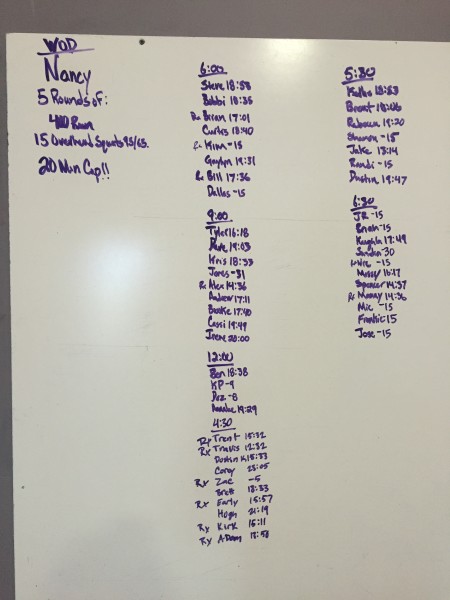 WOD
Nancy
5 Rounds of:
400 Run
15 Overhead Squats 95/65
20 Min Cap!!
6:00
Steve 18:58
Bobbi 18:35
Rx Brian 17:01
Curtis 18:40
Rx Kim -15
19:31
Rx Bill 17:36
Dallas -15
9:00
Tyler 16:18
19:03
Kris 18:33
Jones -31
Rx Alex 14:36
Andrew 17:11
Brooke 17:40
Cassi 19:49
Irene 20:00
12:00
Ben 18:38
KP -9
-8
19:29
4:30
Rx Trent 15:32
Rx Travis 12:32
Dustin K 15:33
Corey
Rx Zac -5
Brett 18:33
Rx Early 15:57
Hugh 21:19
Rx Kirk 15:11
Rx Adam 13:58
5:30
18:53
Brent 18:06
19:20
Shannon -15
Jake 13:14
Randi -15
Dustin 19:47
6:30
JR -15
Brian -15
17:49
30
-15
Missy
Spencer 14:37
Rx Manny 14:36
Mic -15
Frankie 15
Jose -15